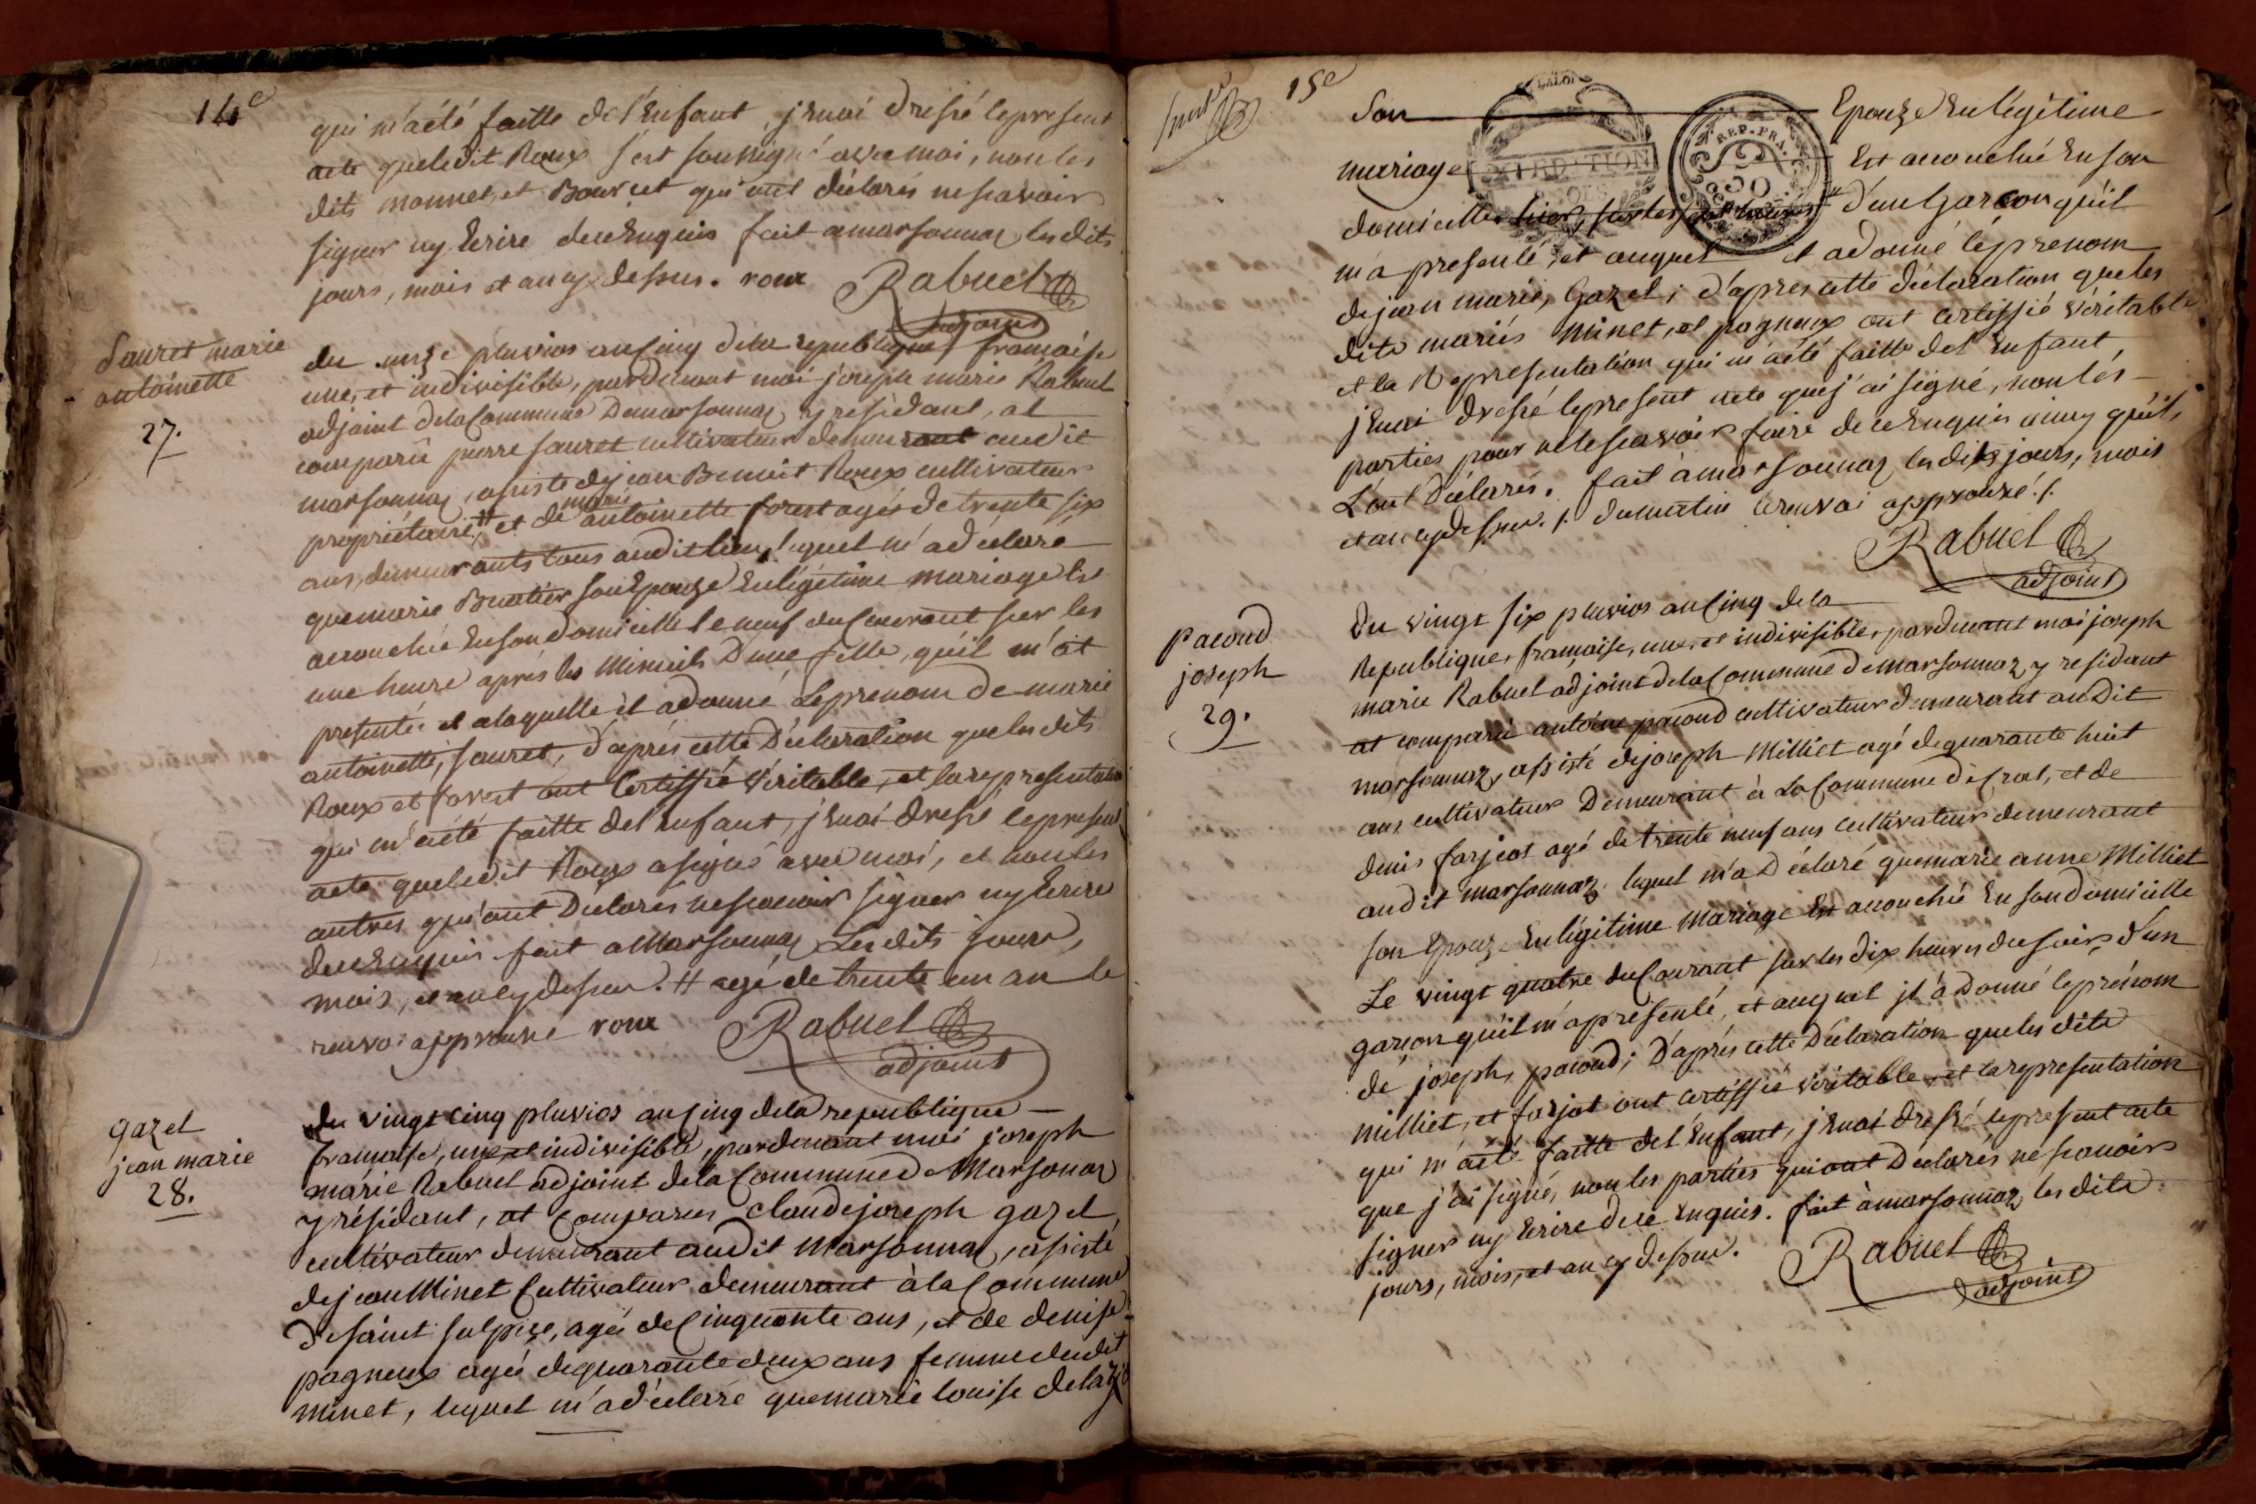 14e
qui m'a été faitte de l'enfant, j'enai dressé le present
acte que ledit Roux s'est soussigné avec moi, non les
dits monnet, et Bouvet qui ont déclarés ne scavoir
signer ny Ecrire de ce Enquis fait a marsonnaz les dits
jours, mois et an cy dessus. roux Rabuel
adjoint
Sauret marie
antoinette
27.
du onze pluvios an Cinq dela republique francaise
une, et indivisible, pardevant moi joseph marie Rabuel
adjoint dela Commune de marsonnaz y residant, at
comparu pierre sauret cultivateur demeurant audit
marsonnaz, assisté de jean Benoit Roux cultivateur
propriétaire, # et de marie antoinette forest agée de trente six
ans, demeurants tous audit lieu, lequel m'a déclaré
que marie Buatier son Epouze En légitime mariage Est
accouchée En son domicille le neuf du Courant sur les
une heure aprés les Minuit D'une fille, qu'il m'at
presentée et a laquelle il a donné Le prenom de marie
antoinette, sauret, d'aprés cette Déclaration que les dits
Roux et forest ont Certiffié Véritable, et la representation
qui m'a été faitte de l'enfant, j'enai dressé le present
acte que ledit Roux a signé avec moi, et non les
autres qui ont Declarés ne scavoir signer ny Ecrire
de ce Enquis fait a Marsonnaz Les dits jours,
mois, et an cy dessus. # agé de trente un an le
renvoi approuvé roux Rabuel
adjoint
gazel
jean marie
28.
du vingt cinq pluvios an Cinq dela republique
francaise, une, et indivisible, pardevant moi joseph
marie Rabuel adjoint dela Commune de Marsonaz
y résidant, at Comparu claude joseph gazel,
cultivateur demeurant audit Marsonnaz, assisté
de jean Minet Cultivateur demeurant à la Commune
de saint sulpize, agé de Cinquante ans, et de denise
pagneux agée de quarante deux ans femme dudit
minet, lequel m'a déclaré que marie louise
15e
Son Epouze En légitime
mariage Est accouchée En son
domicille d'un Garcon qu'il
m'a presenté, et auquel il a donné le prenom
de jean marie, Gazel; d'apres cette déclaration que les
dits mariés Minet, et pagneux ont certiffié Véritable
et la Representation qui m'a été faitte de l'Enfant,
j'enai dressé le present acte que j'ai signé, non les
parties pour ne le scavoir faire de ce Enquis ainsy qu'ils
L'ont Déclarés. fait à marsonnaz les dits jours, mois
et an cy dessus. /. du matin renvoi approuvé ./.
Rabuel
adjoint
pacoud
joseph
29.
Du vingt six pluvios an Cinq dela
Republique, francaise, une, et indivisible, pardevant moi joseph
marie Rabuel adjoint dela Commune de marsonnaz y residant
at comparu antoine pacoud cultivateur demeurant audit
marsonnaz, assisté de joseph Milliet agé de quarante huit
ans cultivateur Demeurant à la Commune de Cras, et de
denis farjot agé de trente neuf ans cultivateur demeurant
audit marsonnaz. lequel m'a Déclaré que marie anne Milliet
son Epouze En légitime Mariage Est accouchée En son domicille
Le vingt quatre du Courant sur les dix heures du soir, d'un
garcon qu'il m'a presenté, et auquel il a Donné le prénom
de joseph, pacoud; d'aprés cette Déclaration que les dits
milliet, et farjot ont certiffié Véritable, et la representation
qui m'a été faitte de l'enfant, j'enai dressé le present acte
que j'ai signé, non les parties qui ont Declarés ne scavoir
signer ny Ecrire de ce Enquis. fait à marsonnaz, les dits
jours, mois, et an cy dessus. Rabuel
adjoint
REP. FRA.